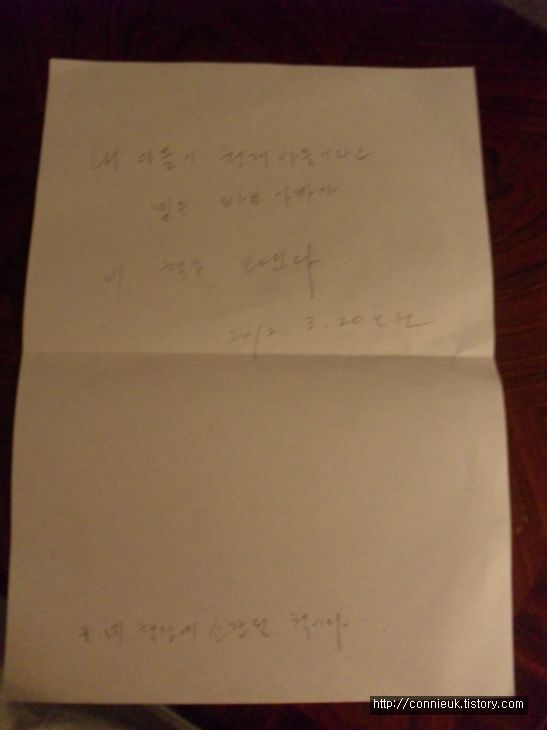 내 아들이 천재 아들이라고
믿는 바보 아빠가
이 책을 보낸다.
2012. 3. 20 오전
네 책장에 소장된 책이다.
http://connieuk.tistory.com